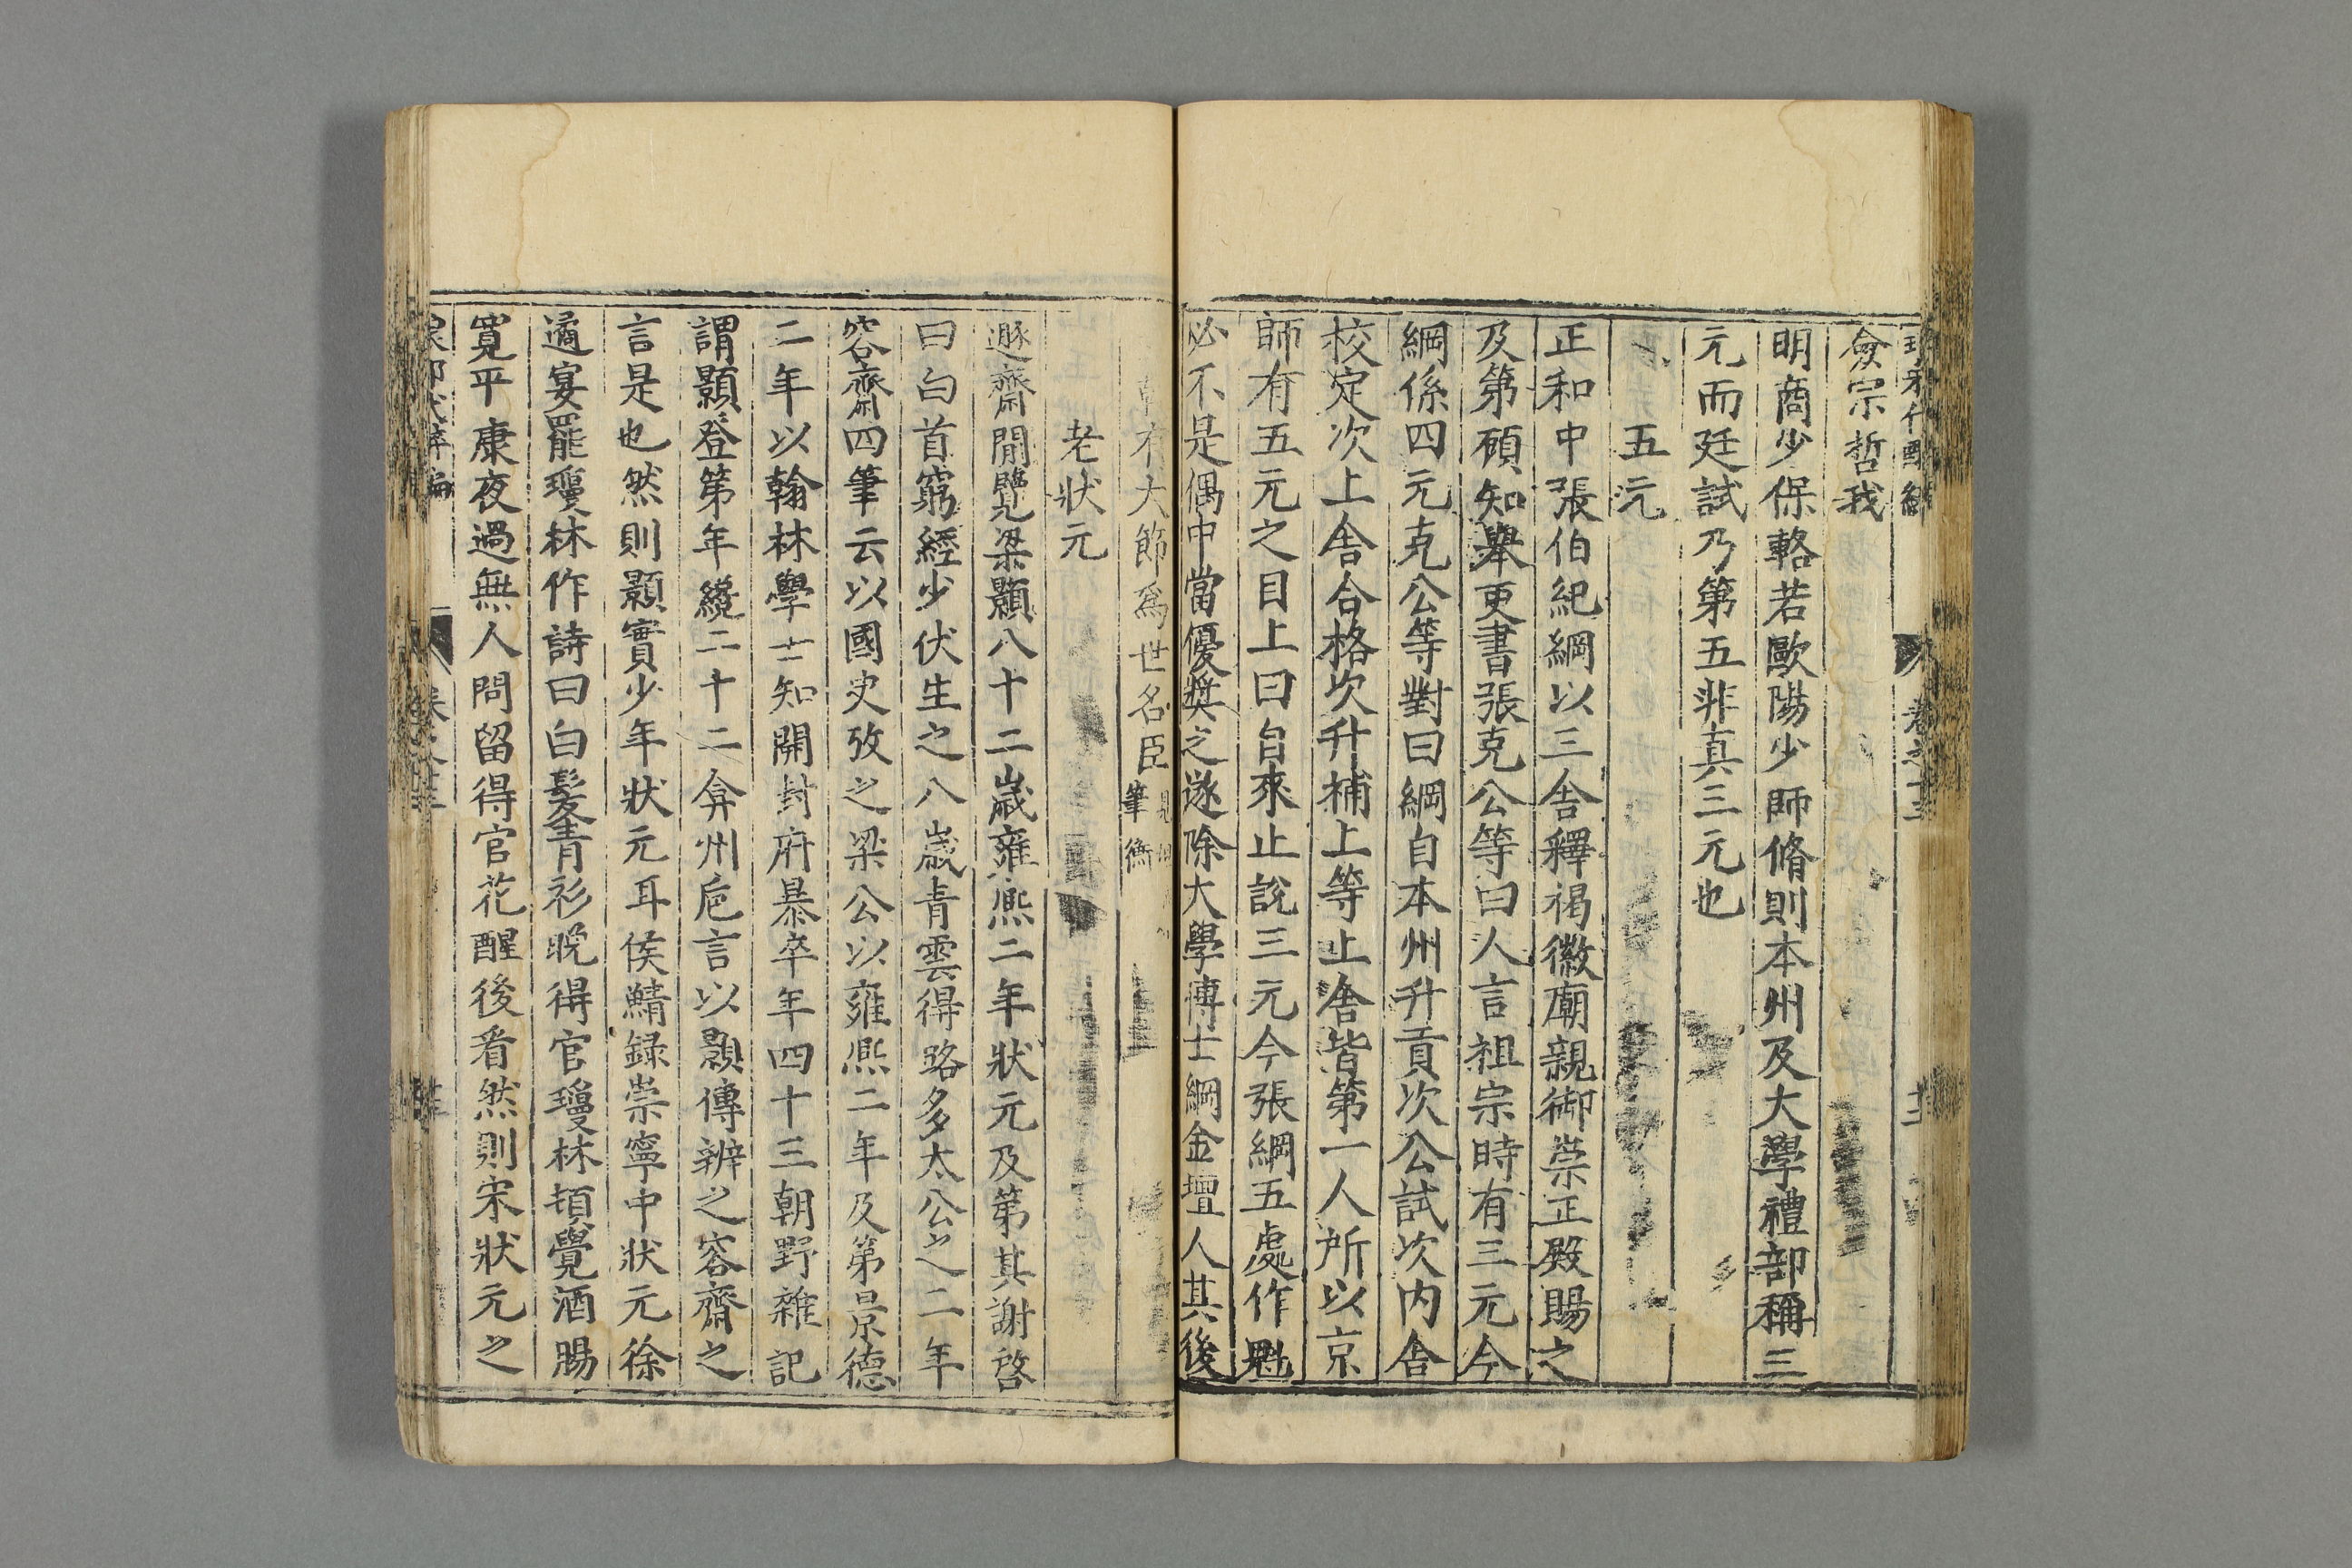 僉宗哲我
明商少保輅若歐陽少師脩則本州及大學禮部稱三
元而廷試乃第五非真三元也
五元
正和中張伯紀綱以三舍釋褐徽廟親御崇正殿賜之
及第顧知舉更書張克公等曰人言祖宗時有三元今
綱係四元克公等對曰綱自本州升貢次公試次内舍
校定次上舍合格次升補上等止舍皆第一人所以京
師有五元之目上曰自來止說三元今張綱五處作魁
必不是偶中當優奬之遂除大學博士綱金壇人其後
大節爲世名臣 筆衡
老狀元
遯齋閒覽梁顥八十二歲雍熙二年狀元及第其謝啓
曰白首窮經少伏生之八歲青雲得路多太公之二年
容齋四筆云以國史攷之梁公以雍熙二年及第景德
二年以翰林學士知開封府暴卒年四十三朝野雜記
謂顥登第年纔二十二弇州巵言以顥傳辨之容齋之
言是也然則顥實少年狀元耳侯鯖録崇寧中狀元徐
遹宴罷瓊林作詩曰白髮青衫晩得官瓊林頓覺酒腸
寬平康夜過無人問留得官花醒後看然則宋狀元之